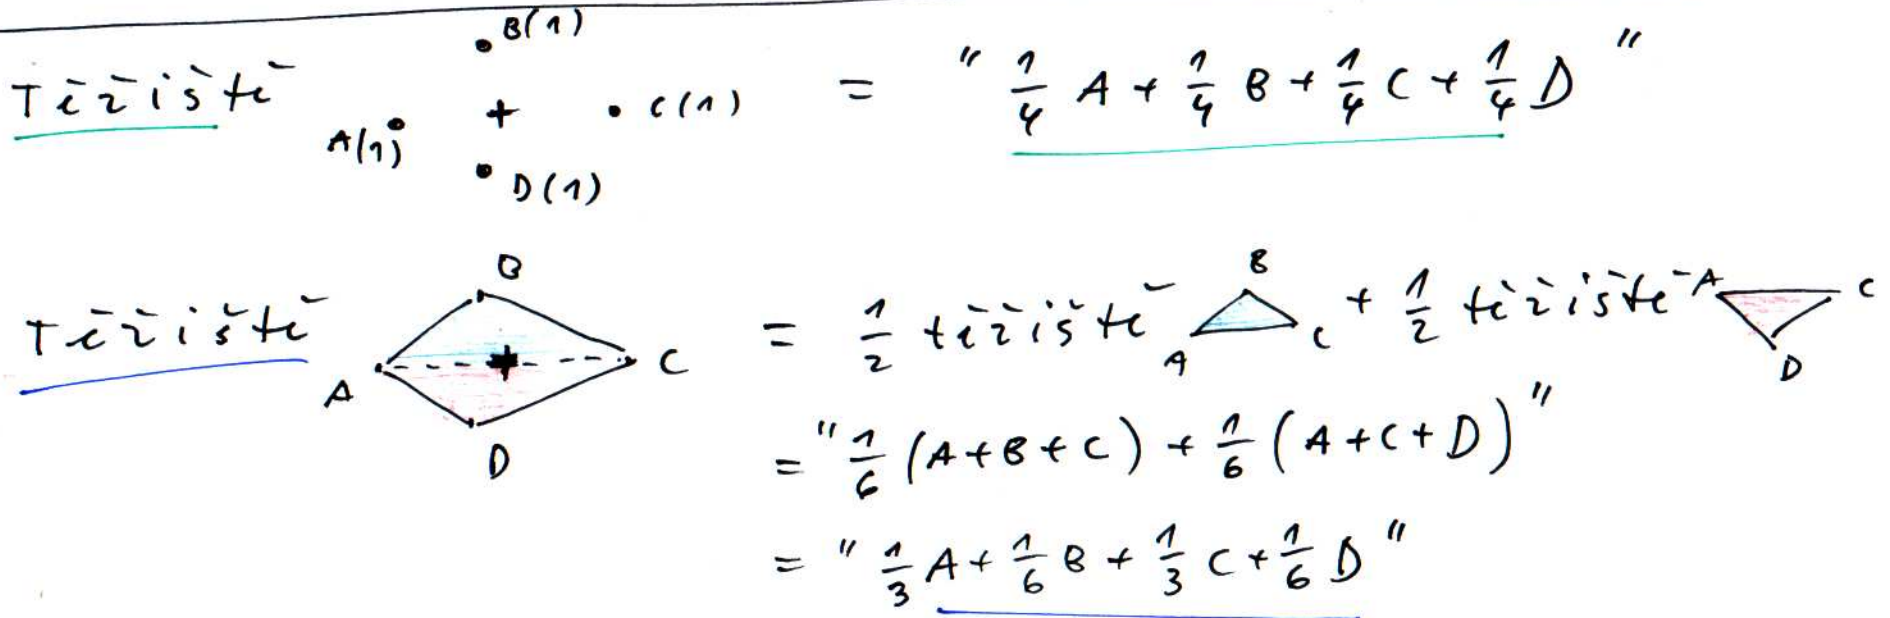 Těžiště A(1) B(1) + C(1) D(1) = " 1/4 A + 1/4 B + 1/4 C + 1/4 D "
Těžiště A B C D = 1/2 těžiště A B C + 1/2 těžiště A C D
= " 1/6 (A+B+C) + 1/6 (A+C+D) "
= " 1/3 A + 1/6 B + 1/3 C + 1/6 D "